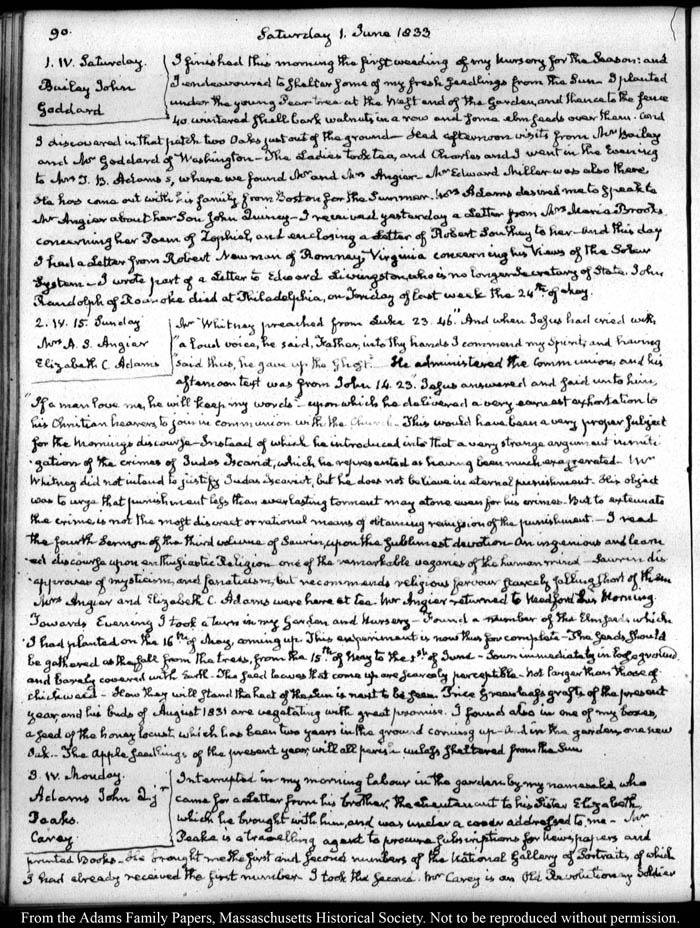 90.
Saturday 1. June 1833
1. IV. Saturday.
Bailey John
Goddard
I finished this morning the first weeding of my Nursery for the Season: and
I endeavoured to shelter some of my fresh seedlings from the Sun. I planted
under the young Pear tree at the West end of the Garden, and thence to the fence
40 wintered shell bark walnuts in a row and some elm seeds over them. And
I discovered in that patch two Oaks just out of the ground— Had afternoon visits from Mr Bailey
and Mr Goddard of Washington— The Ladies took tea, and Charles and I went in the Evening
to Mrs T. B. Adams's, where we found Mr and Mrs Angier. Mr Edward Miller was also there
He has come out with his family from Boston for the Summer. Mrs Adams desired me to speak to
Mr Angier about her Son John Quincy— I received yesterday a Letter from Mrs Maria Brooks
concerning her Poem of Zophiel, and enclosing a Letter of Robert Southey to her— And this day
I had a Letter from Robert Newman of Romney, Virginia concerning his Views of the Solar
System— I wrote part of a Letter to Edward Livingston, who is no longer Secretary of State. John
Randolph of Roanoke died at Philadelphia, on Friday of last week the 24th of May.
2. IV. 15. Sunday
Mrs A. S. Angier
Elizabeth C. Adams
Mr Whitney preached from Luke 23. 46. "And when Jesus had cried with
"a loud voice, he said, Father, into thy hands I commend my Spirit; and having
"said thus, he gave up the Ghost." He administered the Communion, and his
afternoon text was from John 14. 23. Jesus answered and said unto him,
"If a man love me, he will keep my words"— upon which he delivered a very earnest exhortation to
his Christian hearers to join in communion with the Church— This would have been a very proper subject
for the Morning's discourse— Instead of which he introduced into that a very strange argument in miti-
gation of the crimes of Judas Iscariot, which he represented as having been much exaggerated— Mr
Whitney did not intend to justify Judas Iscariot, but he does not believe in eternal punishment. His object
was to urge that punishment less than everlasting torment may atone even for his crimes. But to extenuate
the crime is not the most discreet or rational means of obtaining remission of the punishment.— I read
the fourth Sermon of the third volume of Saurin, upon the sublimest devotion— An ingenious and learn-
ed discourse upon enthusiastic Religion one of the remarkable vagaries of the human mind— Saurin dis-
approves of mysticism, and fanaticism, but recommends religious fervour scarcely falling short of them
Mrs Angier and Elizabeth C. Adams were here at tea. Mr Angier returned to Medford this Morning.
Towards Evening I took a turn in my Garden and Nursery— Found a number of the Elm seeds which
I had planted on the 16th of May, coming up. This experiment is now thus far complete— The seeds should
be gathered as they fall from the trees, from the 15th of May to the 1st of June— Sown immediately in
and barely covered with Earth. The seed leaves that come up are scarcely perceptible— not larger than those of
chickweed— How they will stand the heat of the Sun is next to be seen. grafts of the present
year, and his buds of August 1831 are vegetating with great promise. I found also in one of my boxes,
a seed of the honey locust, which has been two years in the ground coming up— And in the garden, one new
Oak— The Apple seedlings of the present year, will all perish unless sheltered from the Sun
3. IV. Monday.
Adams John Q. Jr
Peaks.
Carey
Interrupted in my morning labour in the garden by my namesake, who
came for a Letter from his brother, the Lieutenant to his Sister Elizabeth,
which he brought with him, and was under a cover addressed to me— Mr
Peaks is a travelling agent to procure subscriptions for newspapers and
printed Books— He brought me the first and second numbers of the National Gallery of Portraits, of which
I had already received the first number. I took the second. Mr Carey is an Old Revolutionary Soldier
From the Adams Family Papers, Massachusetts Historical Society. Not to be reproduced without permission.